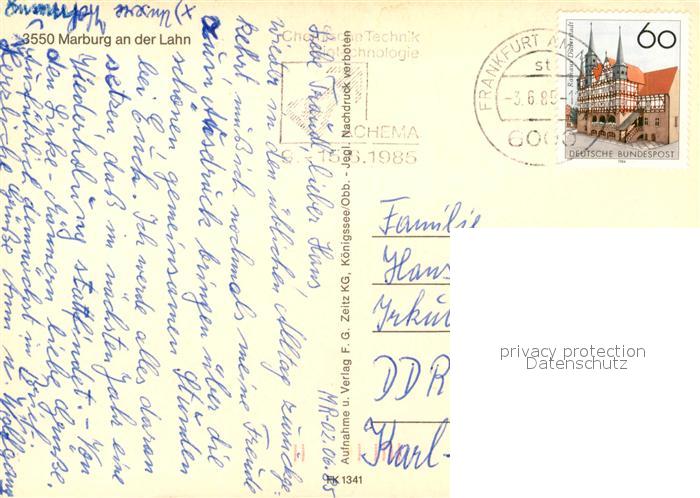 3550 Marburg an der Lahn
x) Unsere
Chemische Technik
Biotechnologie
ACHEMA
9. - 15.6.1985
FRANKFURT AM
st
-3.6.85-
600
60
DEUTSCHE BUNDESPOST
1984
MR-02.06.85
Liebe Traudl, lieber Hans!
Wieder in den üblichen Alltag zurückge-
kehrt muß ich nochmals meine Freude
zum Ausdruck bringen über die
schönen gemeinsamen Stunden
bei Euch. Ich werde alles daran
setzen daß im nächsten Jahr eine
Wiederholung stattfindet. - Von
den Linke-Männern liebe Grüße.
demnächst im Brief.
Herzliche Grüße
Aufnahme u. Verlag F. G. Zeitz KG, Königssee/Obb. - Jegl. Nachdruck verboten
FK 1341
Familie
Hans
Irku
DDR
Karl-
privacy protection
Datenschutz